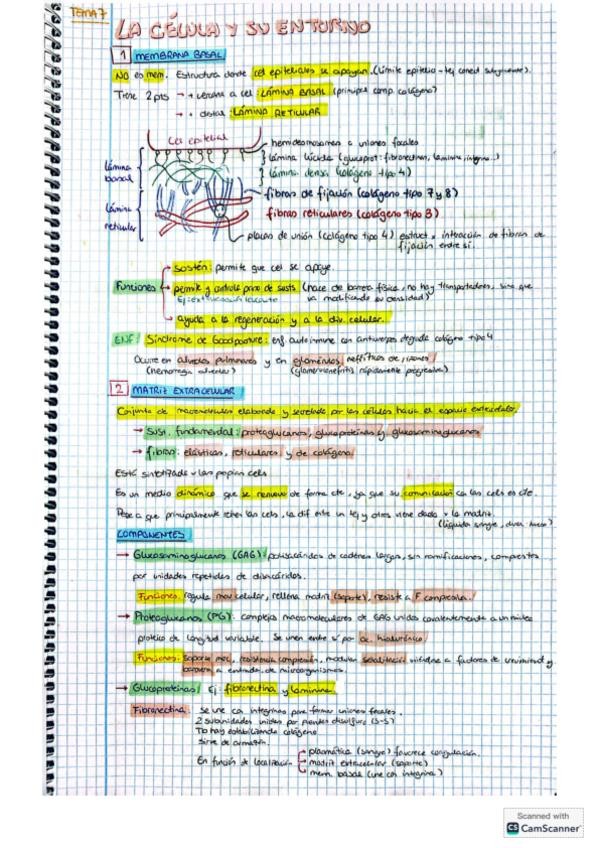 TEMA 7
LA CÉLULA Y SU ENTORNO
1 MEMBRANA BASAL
NO es mem. Estructura donde cel epiteliales se apoyan. (Límite epitelio - tej conect subyacente).
Tiene 2 pts → + cercana a cel: LÁMINA BASAL (principal comp. colágeno)
→ + distal: LÁMINA RETICULAR
Cel epitelial
hemidesmosomas o uniones focales
lámina lúcida (glucoprot: fibronectina, laminina, integrina...)
lámina densa (colágeno tipo 4)
lámina basal
fibras de fijación (colágeno tipo 7 y 8)
lámina reticular
fibras reticulares (colágeno tipo 3)
placas de unión (colágeno tipo 4) estruct. interacción de fibras de fijación entre sí.
Funciones
sostén: permite que cel se apoye.
permite y controla paso de susts. (hace de barrera física, no hay transportadores, sino que
va modificando su densidad)
ayuda a la regeneración y a la div. celular.
ENF: Síndrome de Goodpasture: enf. autoinmune con anticuerpos degrada colágeno tipo 4
Ocurre en alveolos pulmonares y en glomérulos nefríticos de riñones
(hemorragia alveolar) (glomerulonefritis rápidamente progresiva)
2 MATRIZ EXTRACELULAR
Conjunto de macromoléculas elaborado y secretado por las células hacia el espacio extracelular.
→ Sust. fundamental: proteoglucanos, glucoproteínas y glucosaminoglucanos
→ fibras: elásticas, reticulares y de colágeno
Está sintetizada x las propias cels.
Es un medio dinámico que se renueva de forma cte, ya que su comunicación ca las cels es cte.
Pese a que principalmente tienen las cels, la dif entre un tej y otros viene dada x la matriz.
(líquida sangre, dura hueso)
COMPONENTES
→ Glucosaminoglucanos (GAG): polisacáridos de cadenas largas, sin ramificaciones, compuestos
por unidades repetidas de disacáridos.
Funciones: regula mov celular, rellena matriz (soporte), resiste a F compresivas.
→ Proteoglucanos (PG): complejos macromoleculares de GAG unidos covalentemente a un núcleo
proteico de longitud variable. Se unen entre sí por ác. hialurónico
Funciones: soporte mec, resistencia compresión, modular señalización uniéndose a factores de crecimiento y
barrera a entrada de microorganismos.
→ Glucoproteínas: Ej: fibronectina y laminina.
Fibronectina: Se une ca integrinas para formar uniones focales.
2 subunidades unidas por puentes disulfuro (S-S)
Tb hay estabilizando colágeno
Sirve de armazón.
En función de localización
plasmática (sangre) favorece coagulación.
matriz extracelular (soporte)
mem. basal (une con integrina)
Scanned with
CS CamScanner